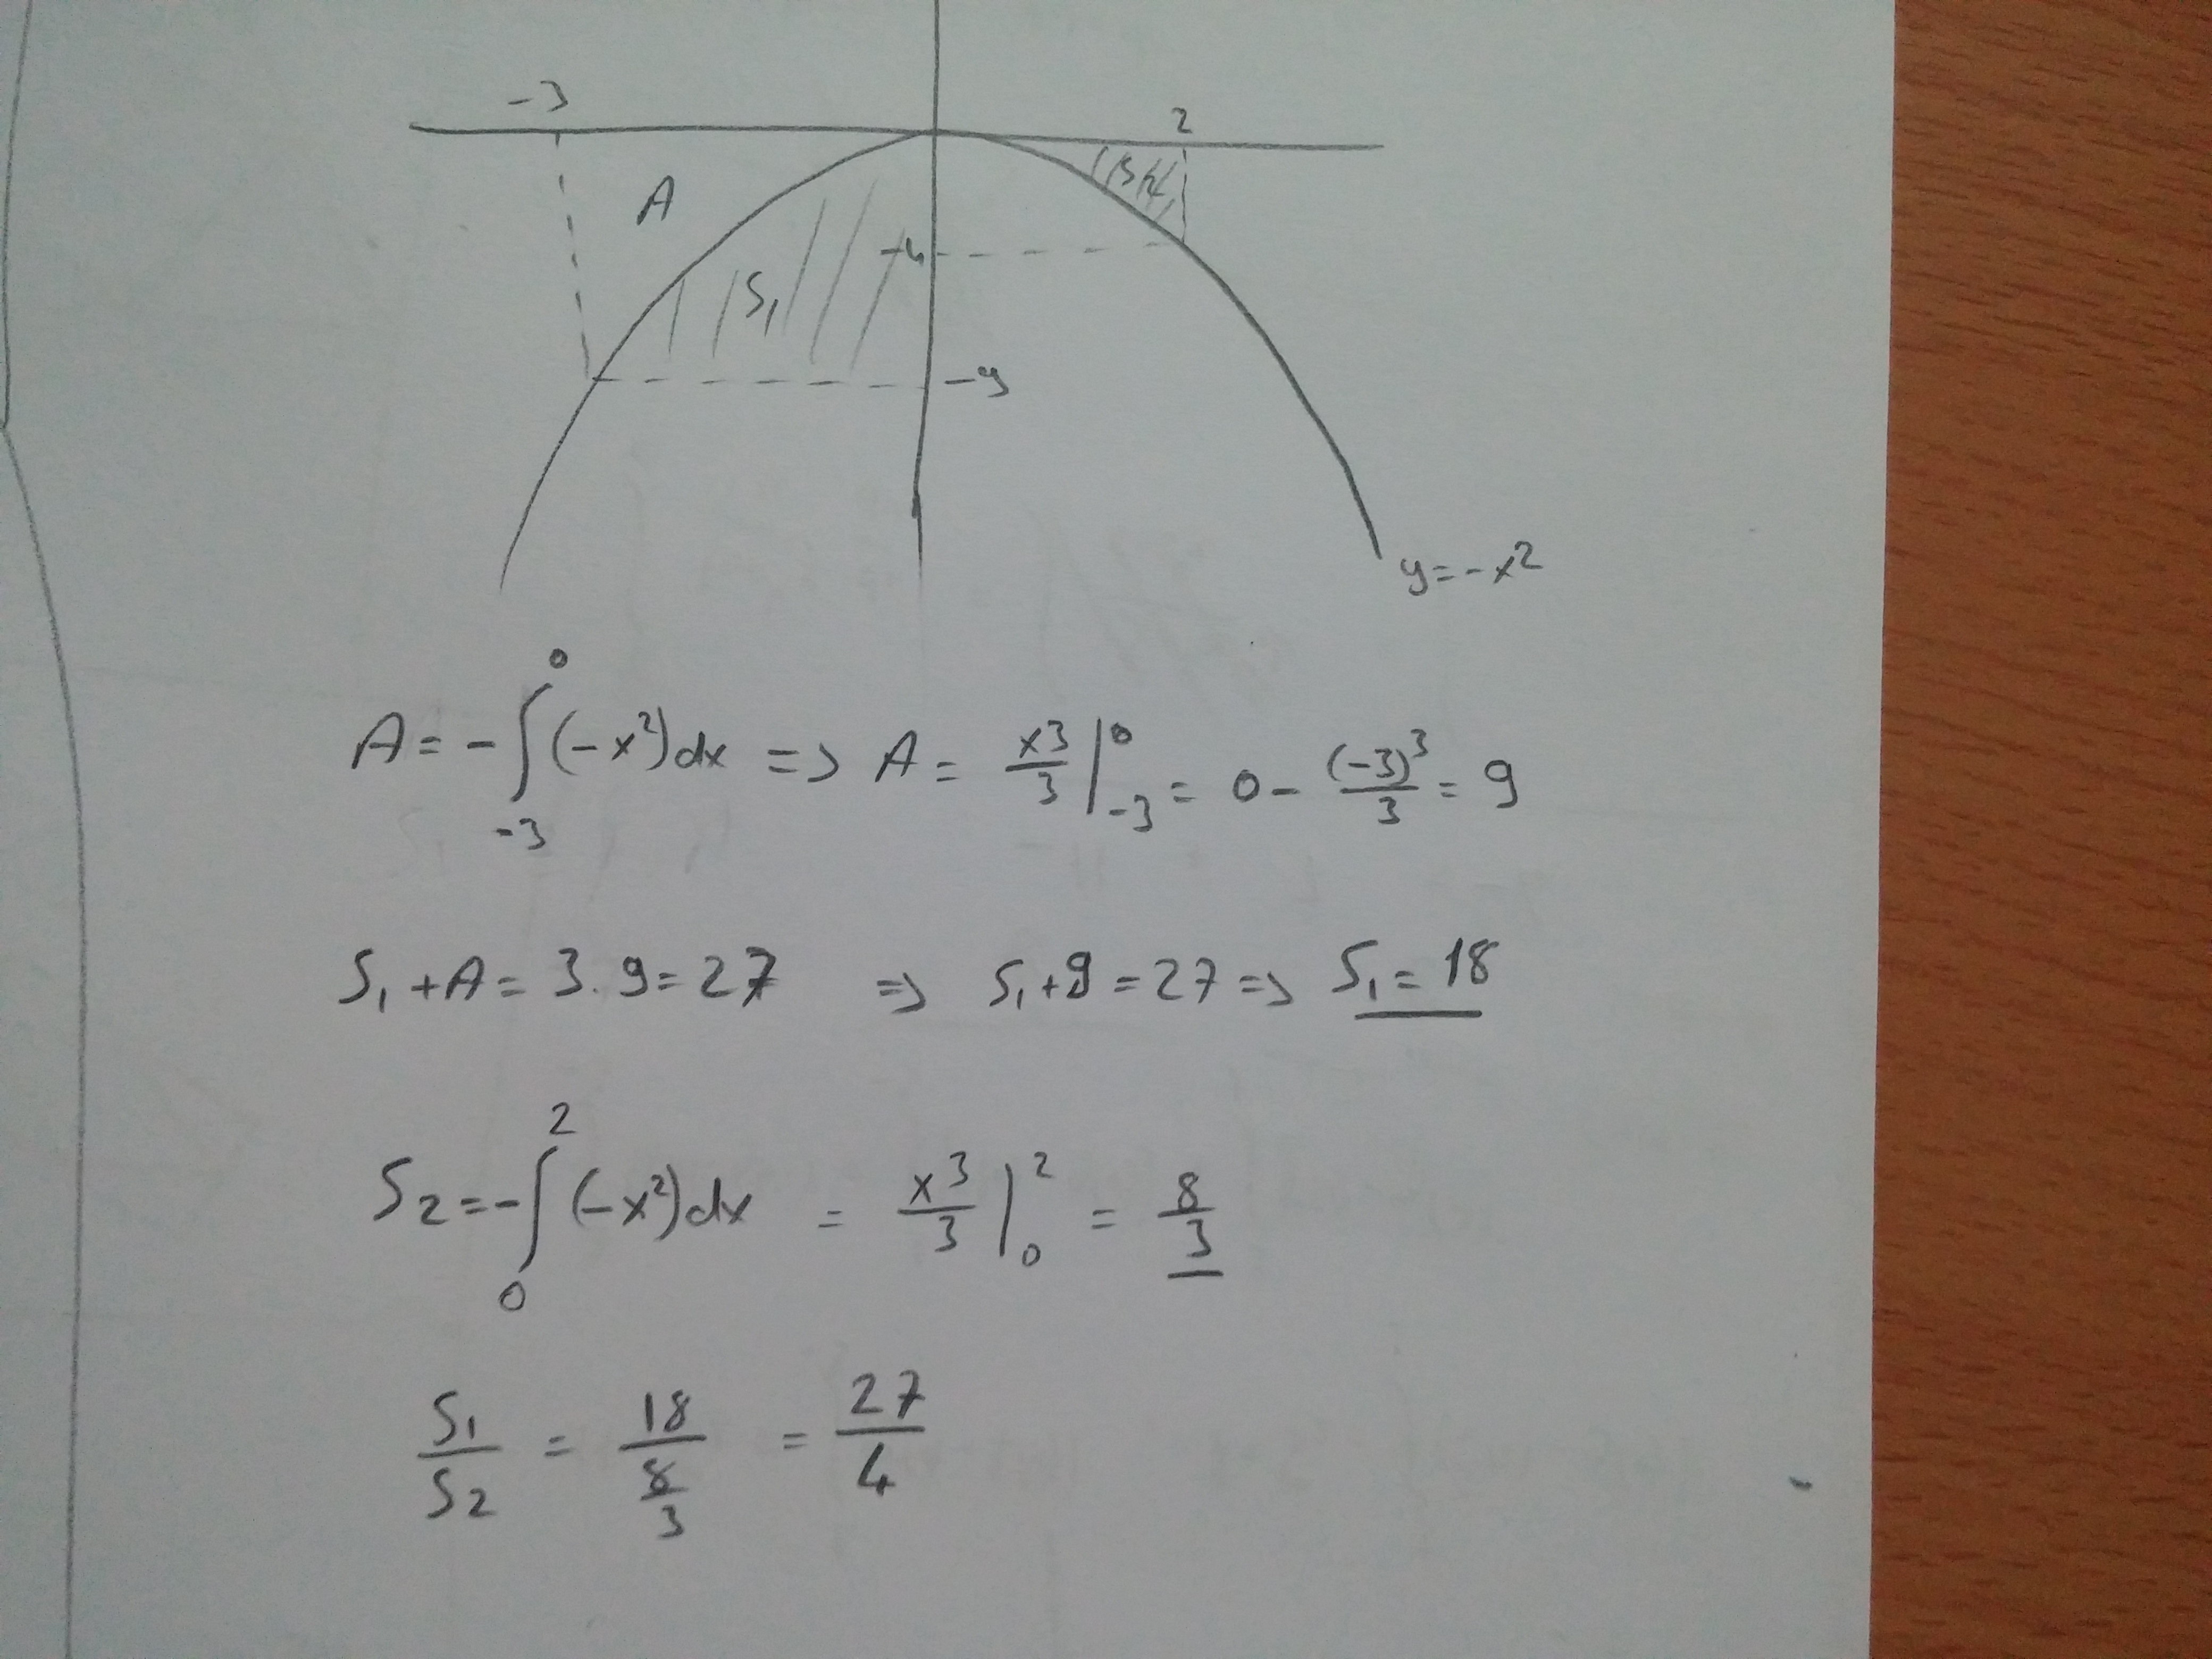 -3
2
A
S₂
-4
S₁
-9
y=-x²
A = -∫₋₃⁰ (-x²)dx => A = x³/3 |₋₃⁰ = 0 - (-3)³/3 = 9
S₁+A = 3.9 = 27 => S₁+9 = 27 => S₁ = 18
S₂ = -∫₀² (-x²)dx = x³/3 |₀² = 8/3
S₁/S₂ = 18/(8/3) = 27/4